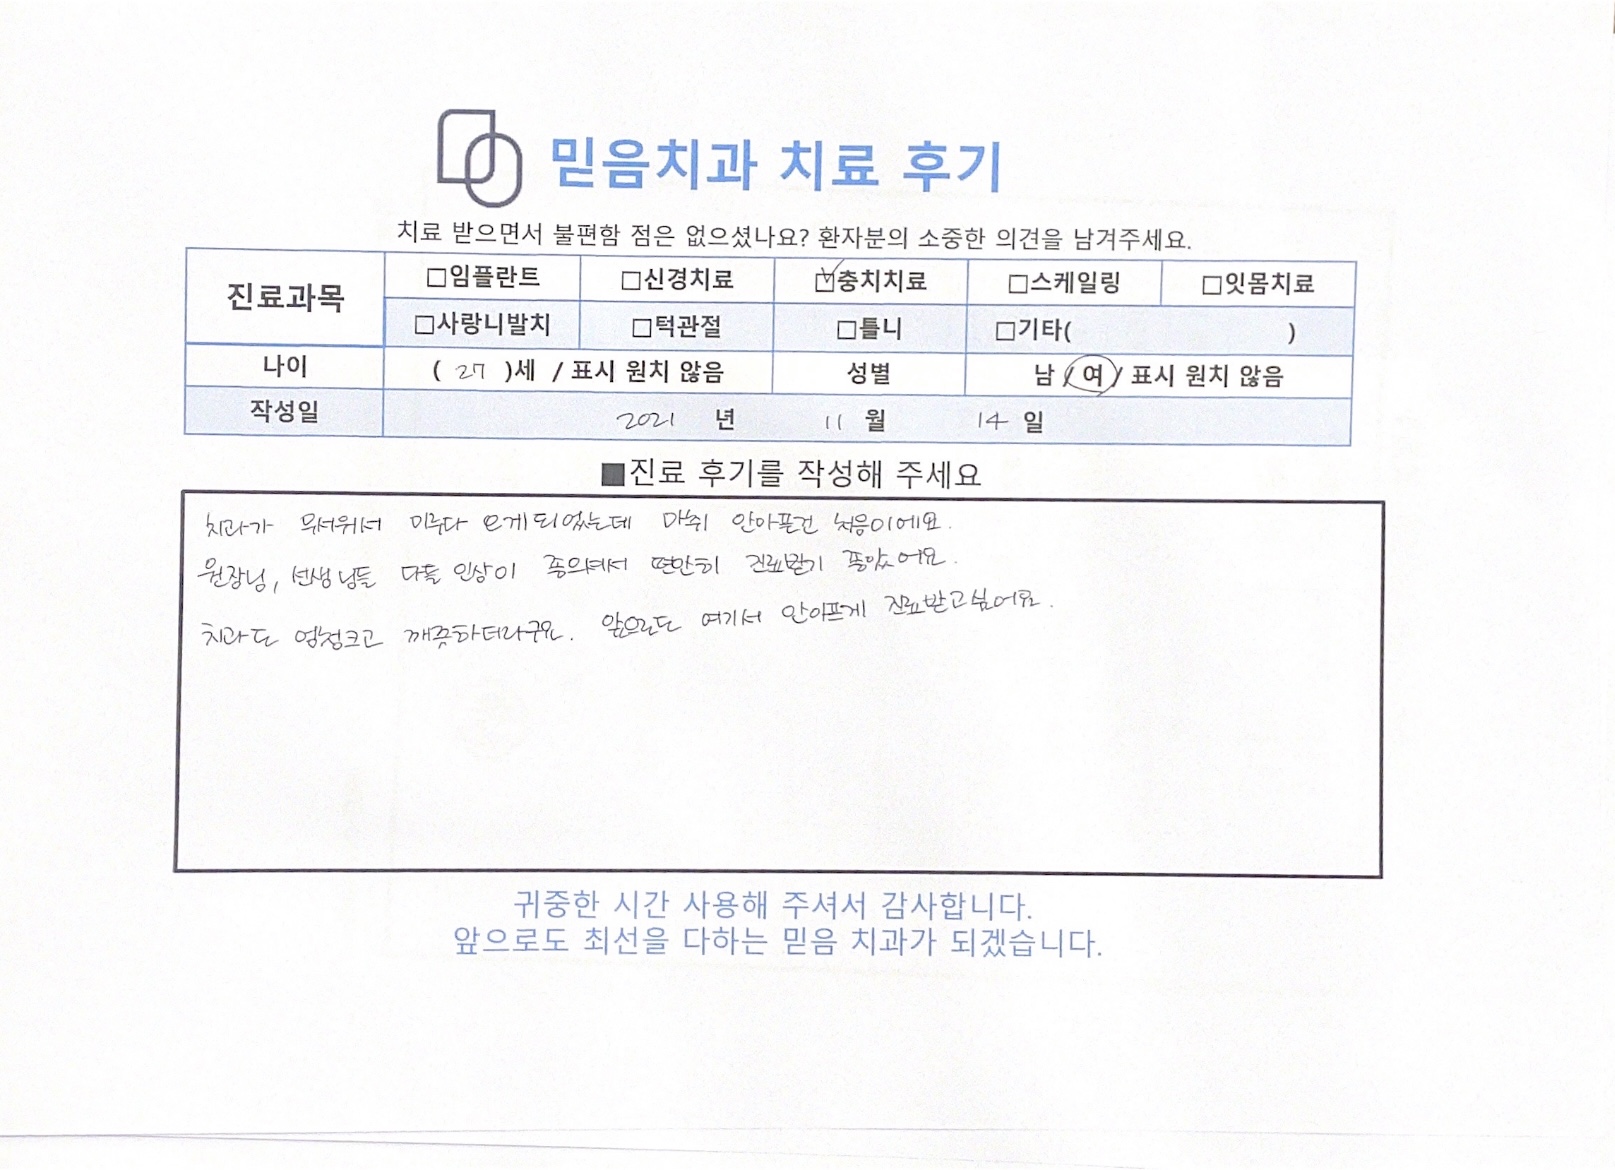 믿음치과 치료 후기
치료 받으면서 불편함 점은 없으셨나요? 환자분의 소중한 의견을 남겨주세요.
진료과목 □임플란트 □신경치료 ☑충치치료 □스케일링 □잇몸치료
□사랑니발치 □턱관절 □틀니 □기타( )
나이 ( 27 )세 / 표시 원치 않음 성별 남 / 여 / 표시 원치 않음
작성일 2021 년 11 월 14 일
■진료 후기를 작성해 주세요
치과가 무서워서 미루다 오게되었는데 마취 안아픈건 처음이에요.
원장님, 선생님들 다들 인상이 좋으셔서 편안히 진료받기 좋았어요.
치과도 엄청크고 깨끗하더라구요. 앞으로도 여기서 안아프게 진료받고싶어요.
귀중한 시간 사용해 주셔서 감사합니다.
앞으로도 최선을 다하는 믿음 치과가 되겠습니다.